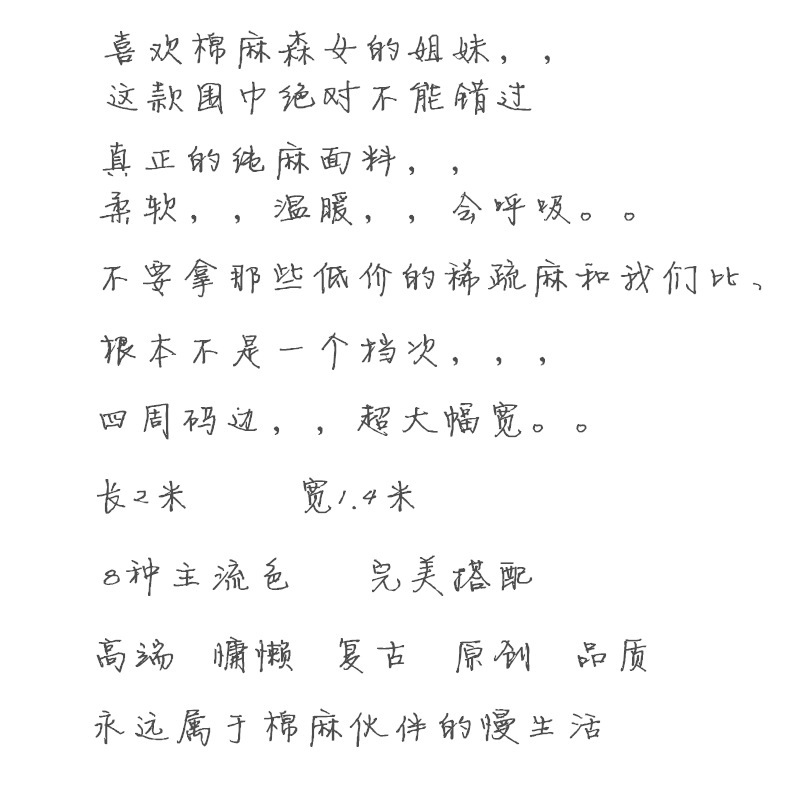 喜欢棉麻森女的姐妹，，
这款围巾绝对不能错过
真正的纯麻面料，，
柔软，，温暖，，会呼吸。。
不要拿那些低价的稀疏麻和我们比、
根本不是一个档次，，，
四周码边，，超大幅宽。。
长2米 宽1.4米
8种主流色 完美搭配
高端 慵懒 复古 原创 品质
永远属于棉麻伙伴的慢生活